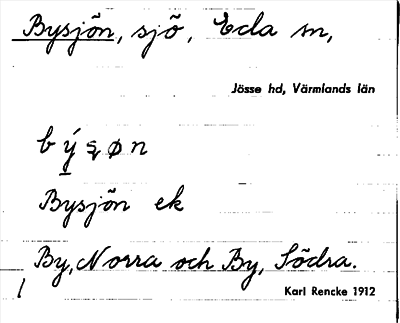 Bysjön, sjö, Eda sn,
Jösse hd, Värmlands län
bý̱ʂøn
Bysjön ek
By, Norra och By, Södra.
Karl Rencke 1912